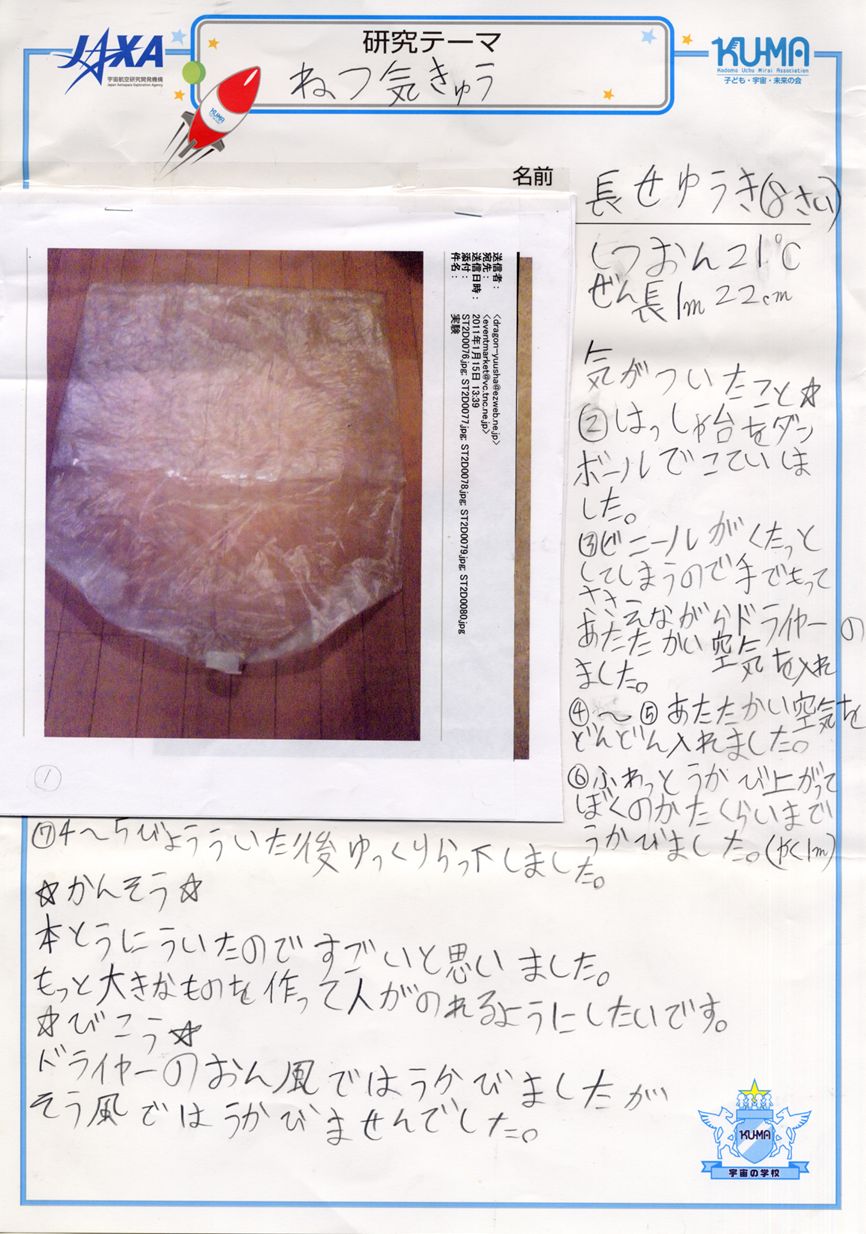 JAXA
宇宙航空研究開発機構
Japan Aerospace Exploration Agency
研究テーマ
ねつ気きゅう
KU-MA
Kodomo Uchu Mirai Association
子ども・宇宙・未来の会
KU-MA
名前
長せゆうき(8さい)
しつおん21℃
ぜん長1m22cm
送信者： <dragon-yuusha@ezweb.ne.jp>
宛先： <eventmarket@vc.tnc.ne.jp>
送信日時： 2011年1月15日 13:39
添付： ST2D0076.jpg; ST2D0077.jpg; ST2D0078.jpg; ST2D0079.jpg; ST2D0080.jpg
件名： 実験
①
気がついたこと☆
②はっしゃ台をダン
ボールでこていしま
した。
③ビニールがくたっと
してしまうので手でもって
ささえながらドライヤーの
あたたかい空気を入れ
ました。
④～⑤あたたかい空気を
どんどん入れました。
⑥ふわっとうかび上がって
ぼくのかたくらいまで
うかびました。(やく1m)
⑦4～5びょうういた後ゆっくりらっ下しました。
☆かんそう☆
本とうにういたのですごいと思いました。
もっと大きなものを作って人がのれるようにしたいです。
☆びこう☆
ドライヤーのおん風ではうかびましたが
そう風ではうかびませんでした。
KU-MA
宇宙の学校